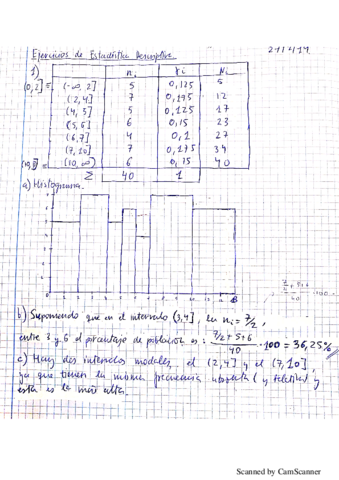 Ejercicios de Estadística Descriptiva. 27/2/19
1) ni fi Ni
(0,2] ≡ (-∞, 2] 5 0,125 5
(2,4] 7 0,175 12
(4, 5] 5 0,125 17
(5,6] 6 0,15 23
(6,7] 4 0,1 27
(7, 10] 7 0,175 34
(10, ∞) 6 0,15 40
Σ 40 1
a) Histograma.
b) Suponiendo que en el intervalo (3,4], la ni = 7/2,
entre 3 y 6 el porcentaje de población es: (7/2 + 5 + 6)/40 · 100 = 36,25%
c) Hay dos intervalos modales, el (2,4] y el (7,10],
ya que tienen la misma frecuencia absoluta (y relativa) y
esta es la más alta.
Scanned by CamScanner